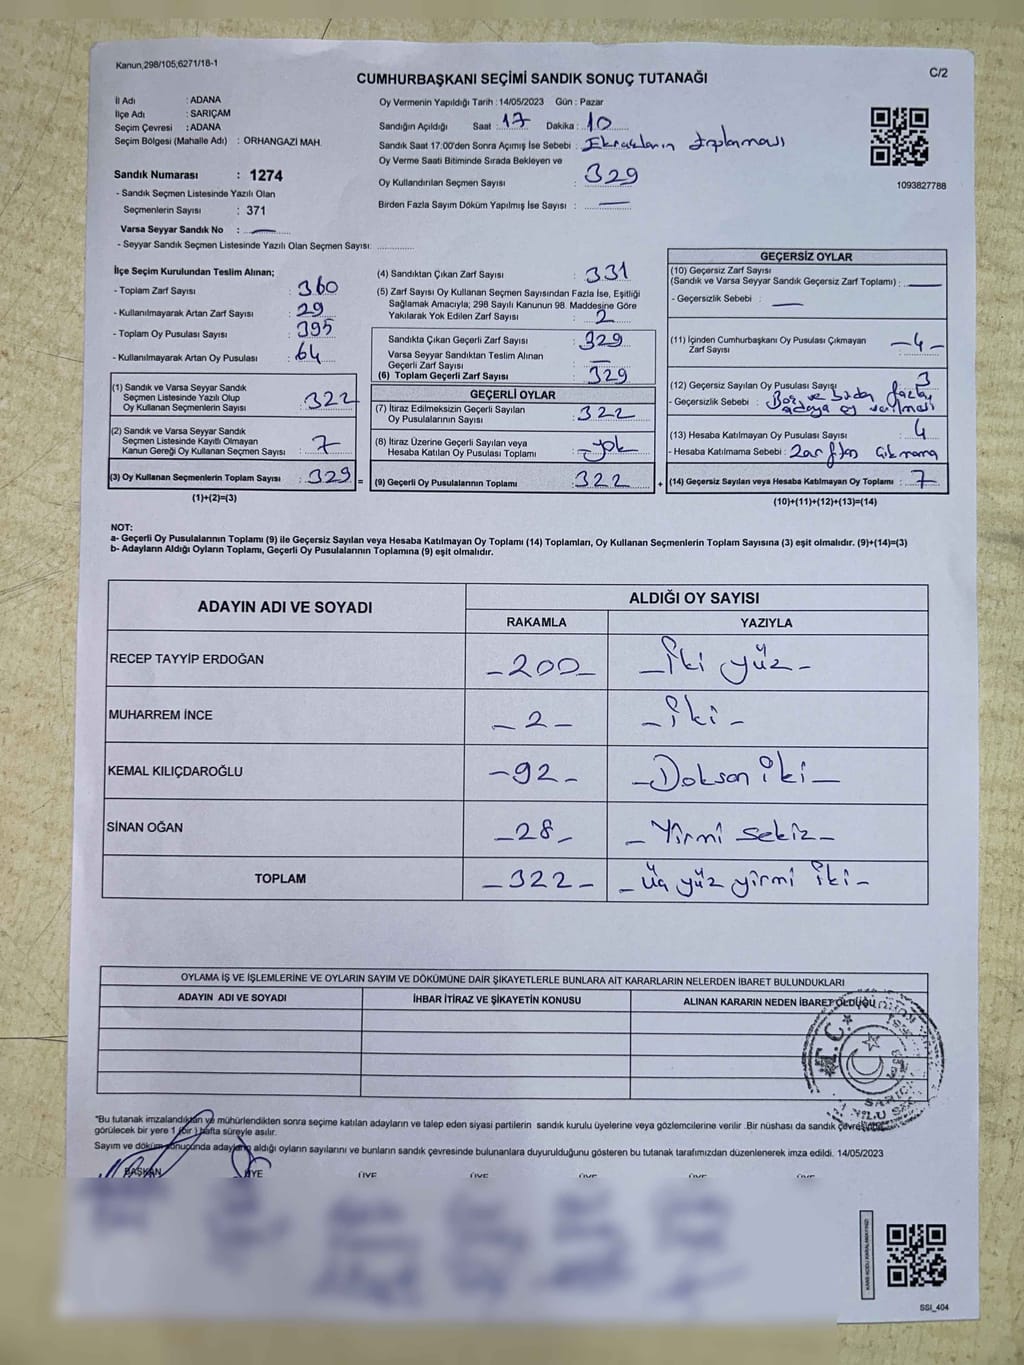 Kanun,298/105,6271/18-1
C/2
CUMHURBAŞKANI SEÇİMİ SANDIK SONUÇ TUTANAĞI
İl Adı : ADANA
İlçe Adı : SARIÇAM
Seçim Çevresi : ADANA
Seçim Bölgesi (Mahalle Adı) : ORHANGAZİ MAH.
Sandık Numarası : 1274
- Sandık Seçmen Listesinde Yazılı Olan
Seçmenlerin Sayısı : 371
Varsa Seyyar Sandık No : —
- Seyyar Sandık Seçmen Listesinde Yazılı Olan Seçmen Sayısı: ............
Oy Vermenin Yapıldığı Tarih : 14/05/2023 Gün : Pazar
Sandığın Açıldığı Saat : 17 Dakika : 10
Sandık Saat 17:00'den Sonra Açımış İse Sebebi : Ekrakların toplanması
Oy Verme Saati Bitiminde Sırada Bekleyen ve
Oy Kullandırılan Seçmen Sayısı : 329
Birden Fazla Sayım Döküm Yapılmış İse Sayısı : —
1093827788
İlçe Seçim Kurulundan Teslim Alınan;
- Toplam Zarf Sayısı : 360
- Kullanılmayarak Artan Zarf Sayısı : 29
- Toplam Oy Pusulası Sayısı : 395
- Kullanılmayarak Artan Oy Pusulası : 64
(1) Sandık ve Varsa Seyyar Sandık
Seçmen Listesinde Yazılı Olup
Oy Kullanan Seçmenlerin Sayısı : 322
(2) Sandık ve Varsa Seyyar Sandık
Seçmen Listesinde Kayıtlı Olmayan
Kanun Gereği Oy Kullanan Seçmen Sayısı : 7
(3) Oy Kullanan Seçmenlerin Toplam Sayısı : 329 =
(1)+(2)=(3)
(4) Sandıktan Çıkan Zarf Sayısı : 331
(5) Zarf Sayısı Oy Kullanan Seçmen Sayısından Fazla İse, Eşitliği
Sağlamak Amacıyla; 298 Sayılı Kanunun 98. Maddesine Göre
Yakılarak Yok Edilen Zarf Sayısı : 2
Sandıkta Çıkan Geçerli Zarf Sayısı : 329
Varsa Seyyar Sandıktan Teslim Alınan
Geçerli Zarf Sayısı : —
(6) Toplam Geçerli Zarf Sayısı : 329
GEÇERLİ OYLAR
(7) İtiraz Edilmeksizin Geçerli Sayılan
Oy Pusulalarının Sayısı : 322
(8) İtiraz Üzerine Geçerli Sayılan veya
Hesaba Katılan Oy Pusulası Toplamı : -yok
(9) Geçerli Oy Pusulalarının Toplamı : 322 +
GEÇERSİZ OYLAR
(10) Geçersiz Zarf Sayısı
(Sandık ve Varsa Seyyar Sandık Geçersiz Zarf Toplamı) : —
- Geçersizlik Sebebi : —
(11) İçinden Cumhurbaşkanı Oy Pusulası Çıkmayan
Zarf Sayısı : -4-
(12) Geçersiz Sayılan Oy Pusulası Sayısı : 3
- Geçersizlik Sebebi : Boş ve birden fazla
adaya oy verilmesi
(13) Hesaba Katılmayan Oy Pusulası Sayısı : 4
- Hesaba Katılmama Sebebi : Zarftan çıkmama
(14) Geçersiz Sayılan veya Hesaba Katılmayan Oy Toplamı : 7
(10)+(11)+(12)+(13)=(14)
NOT:
a- Geçerli Oy Pusulalarının Toplamı (9) ile Geçersiz Sayılan veya Hesaba Katılmayan Oy Toplamı (14) Toplamları, Oy Kullanan Seçmenlerin Toplam Sayısına (3) eşit olmalıdır. (9)+(14)=(3)
b- Adayların Aldığı Oyların Toplamı, Geçerli Oy Pusulalarının Toplamına (9) eşit olmalıdır.
ADAYIN ADI VE SOYADI
ALDIĞI OY SAYISI
RAKAMLA YAZIYLA
RECEP TAYYİP ERDOĞAN -200- -İki yüz-
MUHARREM İNCE -2- -İki-
KEMAL KILIÇDAROĞLU -92- -Doksan iki-
SİNAN OĞAN -28- -Yirmi sekiz-
TOPLAM -322- -Üç yüz yirmi iki-
OYLAMA İŞ VE İŞLEMLERİNE VE OYLARIN SAYIM VE DÖKÜMÜNE DAİR ŞİKAYETLERLE BUNLARA AİT KARARLARIN NELERDEN İBARET BULUNDUKLARI
ADAYIN ADI VE SOYADI İHBAR İTİRAZ VE ŞİKAYETİN KONUSU ALINAN KARARIN NEDEN İBARET OLDUĞU
T.C.
"Bu tutanak imzalandıktan ve mühürlendikten sonra seçime katılan adayların ve talep eden siyasi partilerin sandık kurulu üyelerine veya gözlemcilerine verilir .Bir nüshası da sandık çevresinde
görülecek bir yere 1 (bir ) hafta süreyle asılır.
Sayım ve döküm sonucunda adayların aldığı oyların sayılarını ve bunların sandık çevresinde bulunanlara duyurulduğunu gösteren bu tutanak tarafımızdan düzenlenerek imza edildi. 14/05/2023
BAŞKAN ÜYE ÜYE ÜYE ÜYE ÜYE ÜYE
SSI_404